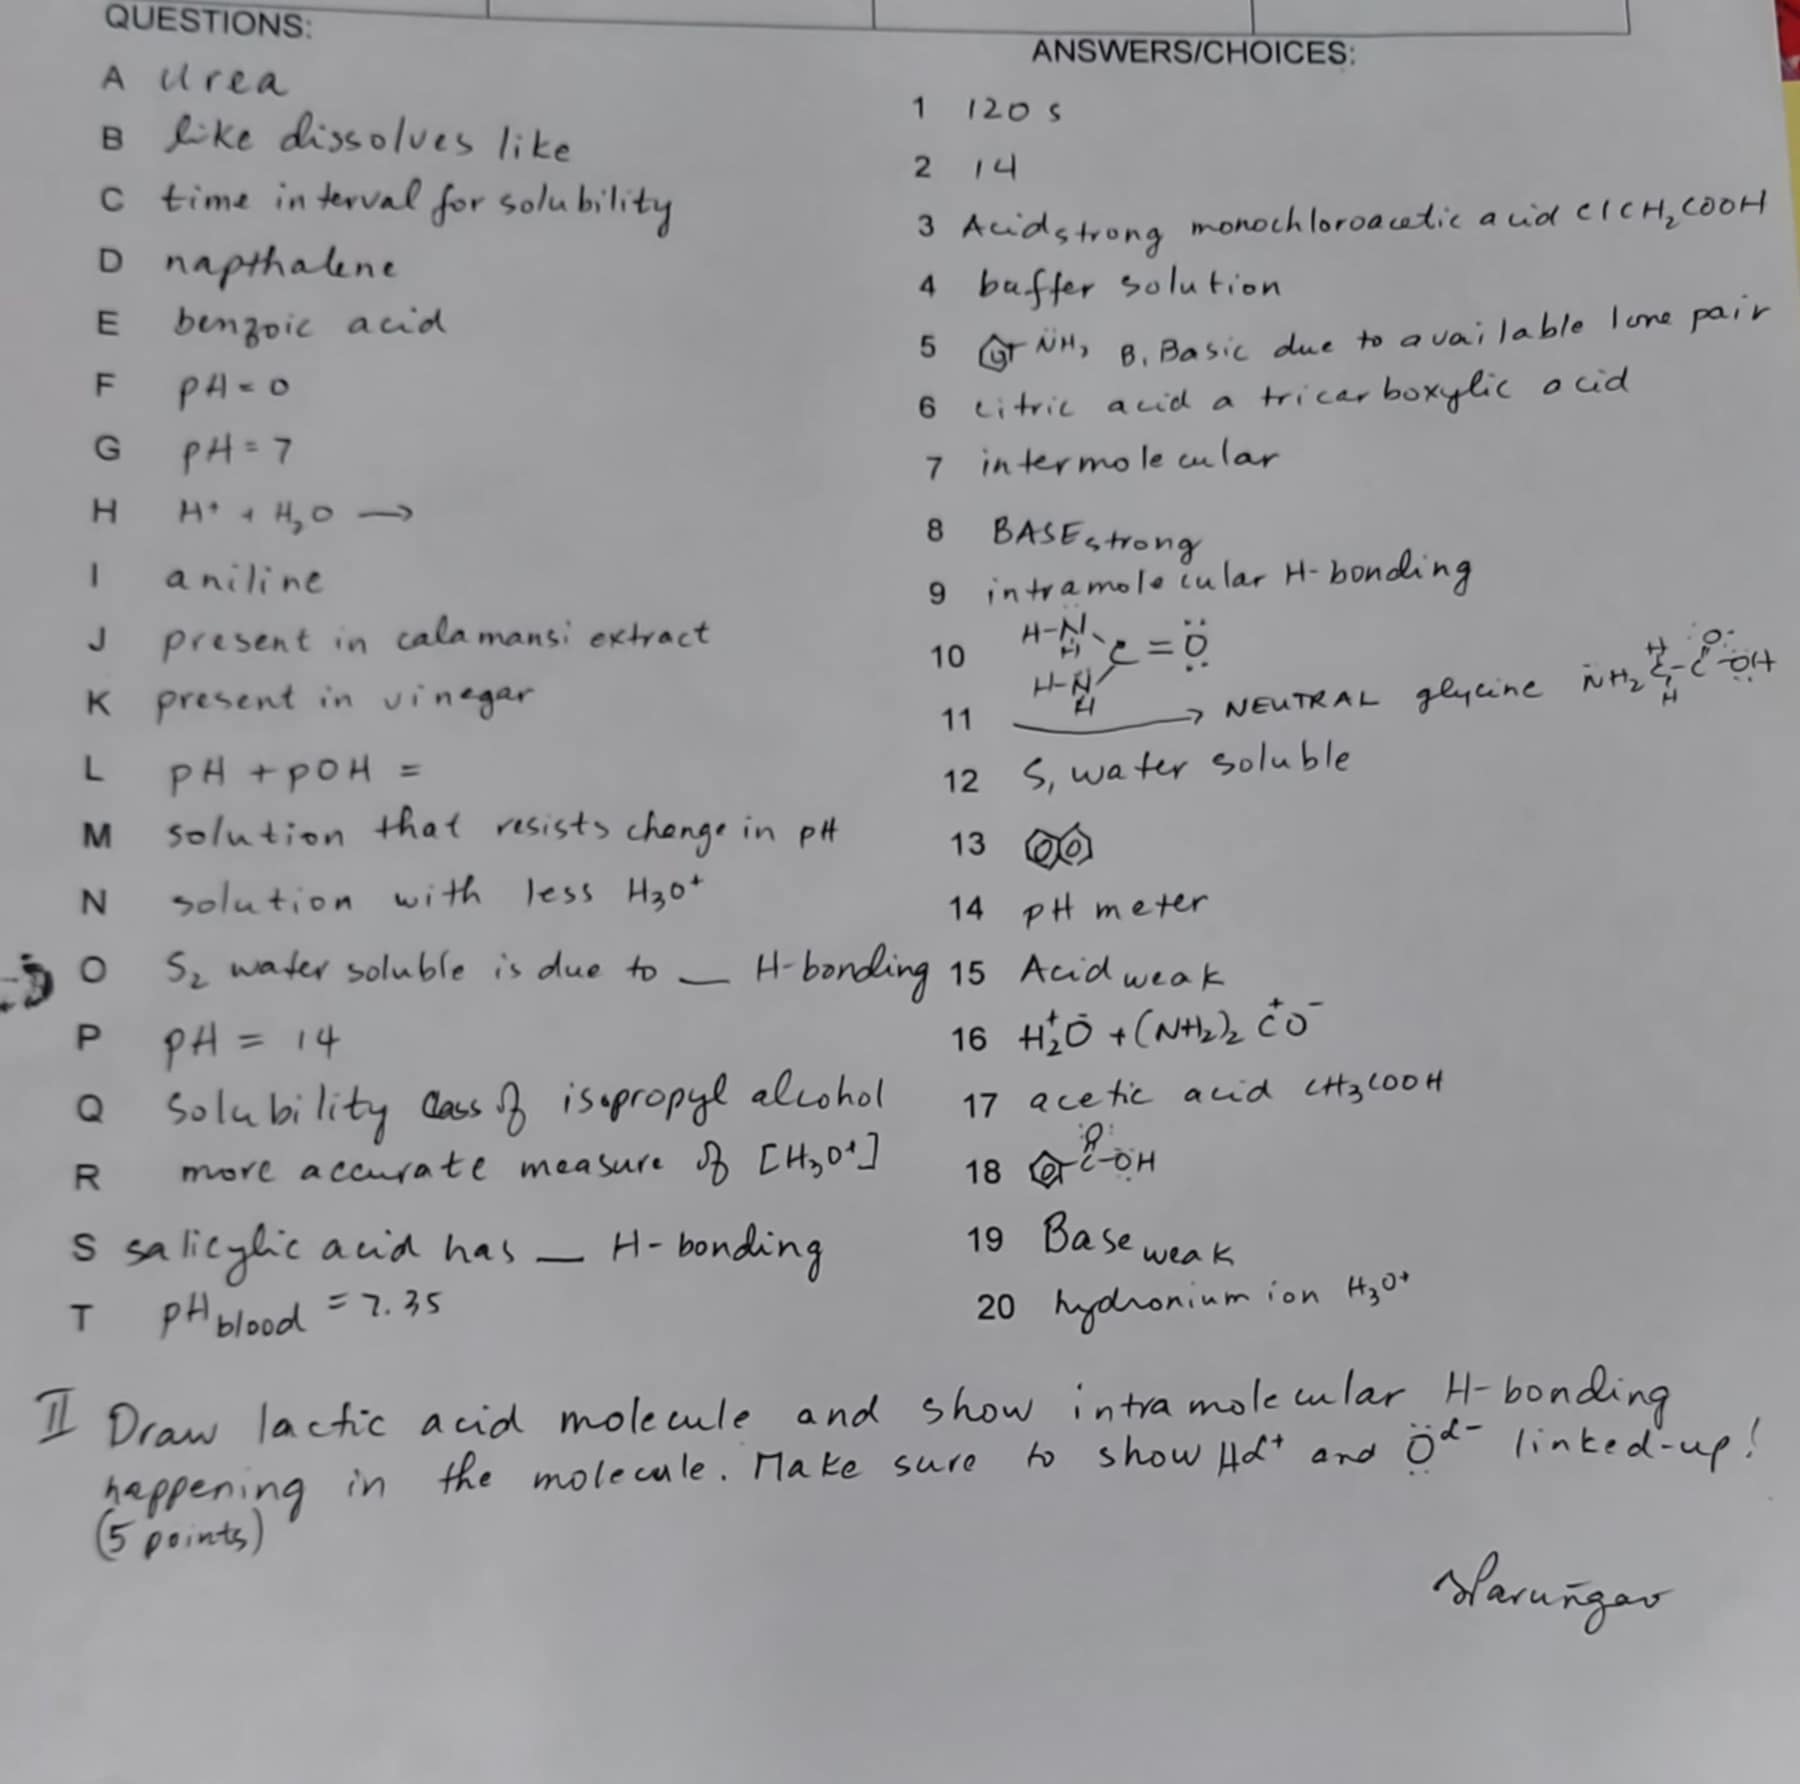 QUESTIONS:
A urea
B like dissolves like
C time interval for solubility
D napthalene
E benzoic acid
F pH = 0
G pH = 7
H H⁺ + H₂O →
I aniline
J present in calamansi extract
K present in vinegar
L pH + pOH =
M solution that resists change in pH
N solution with less H₃O⁺
O S₂ water soluble is due to __ H-bonding
P pH = 14
Q Solubility class of isopropyl alcohol
R more accurate measure of [H₃O⁺]
S salicylic acid has __ H-bonding
T pH blood = 7.35
ANSWERS/CHOICES:
1 120 s
2 14
3 Acid strong monochloroacetic acid ClCH₂COOH
4 buffer solution
5 NH₂ B, Basic due to available lone pair
6 citric acid a tricarboxylic acid
7 intermolecular
8 BASE strong
9 intramolecular H-bonding
10 H-N H H-N H C = O
11 → NEUTRAL glycine NH₂ H C H - C O OH
12 S, water soluble
13
14 pH meter
15 Acid weak
16 H₂⁺O⁻ + (NH₂)₂ C⁺O⁻
17 acetic acid CH₃COOH
18 O C-OH
19 Base weak
20 hydronium ion H₃O⁺
II Draw lactic acid molecule and show intramolecular H-bonding
happening in the molecule. Make sure to show Hd⁺ and Öd⁻ linked-up!
(5 points)